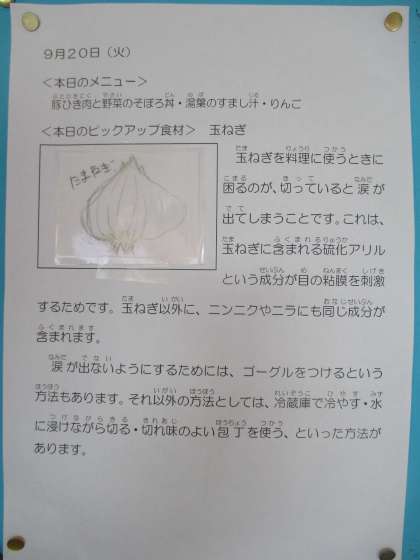 9月20日（火）
＜本日のメニュー＞
豚ひき肉と野菜のそぼろ丼・湯葉のすまし汁・りんご
＜本日のピックアップ食材＞　玉ねぎ
たまねぎ
玉ねぎを料理に使うときに
困るのが、切っていると涙が
出てしまうことです。これは、
玉ねぎに含まれる硫化アリル
という成分が目の粘膜を刺激
するためです。玉ねぎ以外に、ニンニクやニラにも同じ成分が
含まれます。
涙が出ないようにするためには、ゴーグルをつけるという
方法もあります。それ以外の方法としては、冷蔵庫で冷やす・水
に浸けながら切る・切れ味のよい包丁を使う、といった方法が
あります。